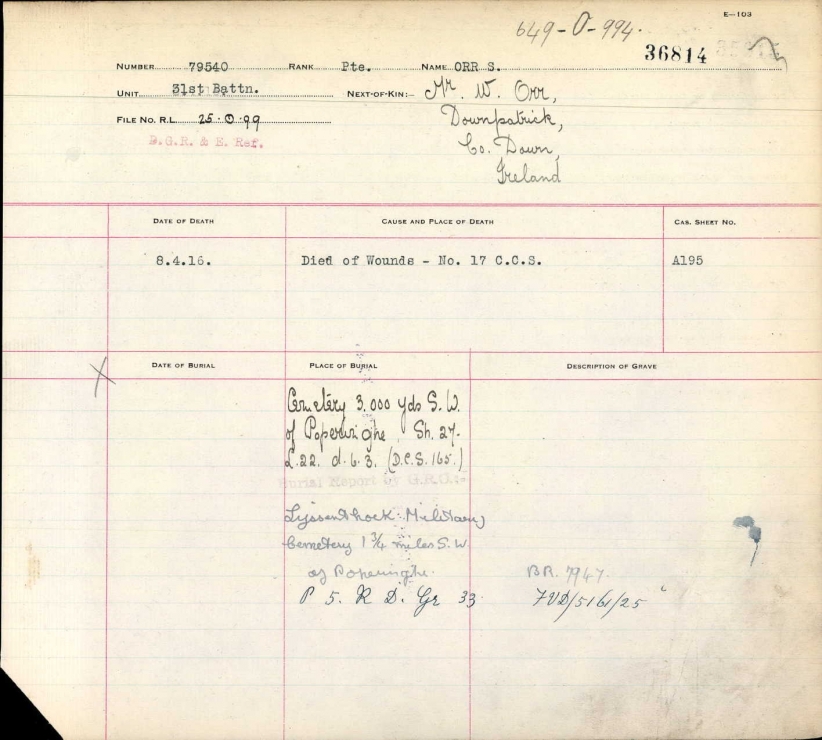 E—103
649-O-994.
36814
NUMBER 79540 RANK Pte. NAME ORR S.
UNIT 31st Battn. NEXT-OF-KIN:— Mr. W. Orr,
Downpatrick,
Co. Down,
Ireland
FILE NO. R.L. 25·O·99
D.G.R. & E. Ref.
DATE OF DEATH CAUSE AND PLACE OF DEATH CAS. SHEET NO.
8.4.16. Died of Wounds - No. 17 C.C.S. A195
DATE OF BURIAL PLACE OF BURIAL DESCRIPTION OF GRAVE
X
Cemetery 3.000 yds S.W.
of Poperinghe Sh. 27.
L.22. d.6.3. (D.C.S. 165.)
Burial Report by G.R.O.:-
Lyssenthoek Military
Cemetery 1 3/4 miles S.W.
of Poperinghe.
P 5. R D. Gr 33.
BR. 7947.
7VD/5161/25